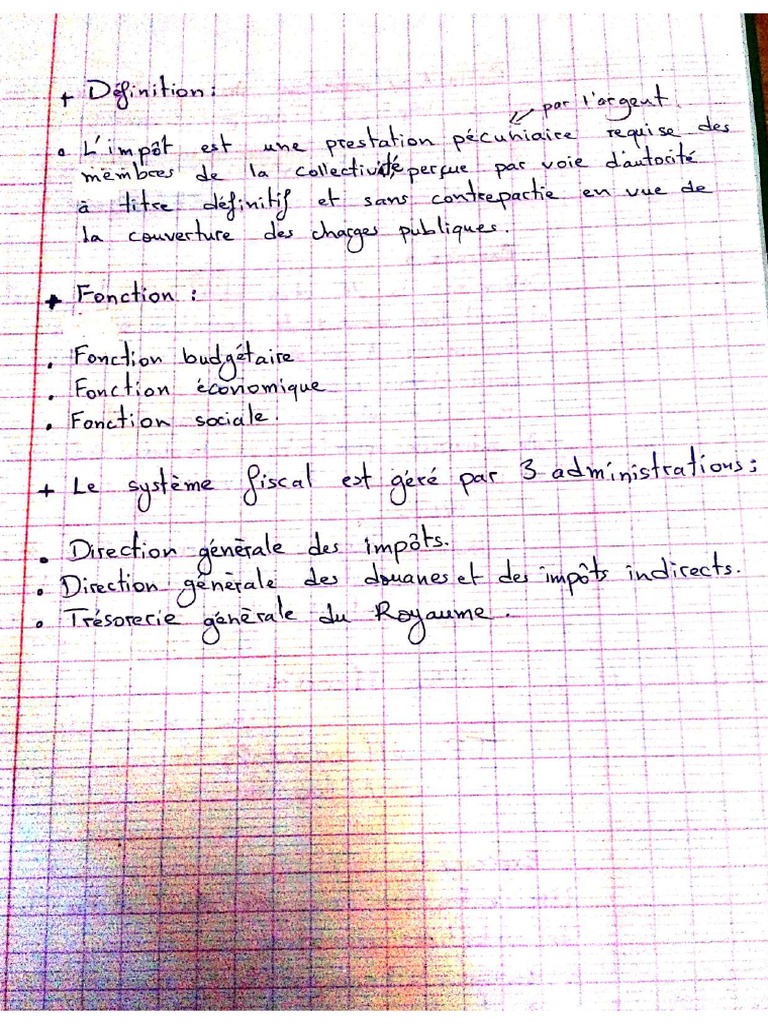 + Définition :
par l'argent.
• L'impôt est une prestation pécuniaire requise des
membres de la collectivité, perçue par voie d'autorité
à titre définitif et sans contrepartie en vue de
la couverture des charges publiques.
+ Fonction :
• Fonction budgétaire
• Fonction économique
• Fonction sociale.
+ Le système fiscal est géré par 3 administrations :
• Direction générale des impôts.
• Direction générale des douanes et des impôts indirects.
• Trésorerie générale du Royaume.